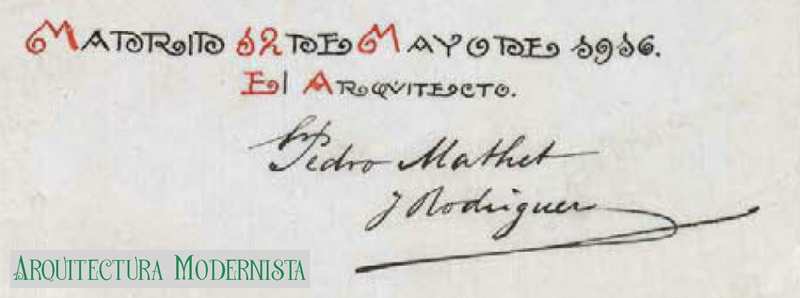 MADRID 12 DE MAYO DE 1916.
El ARQVITECTO.
Pedro Mathet
y Rodriguez
ARQUITECTURA MODERNISTA